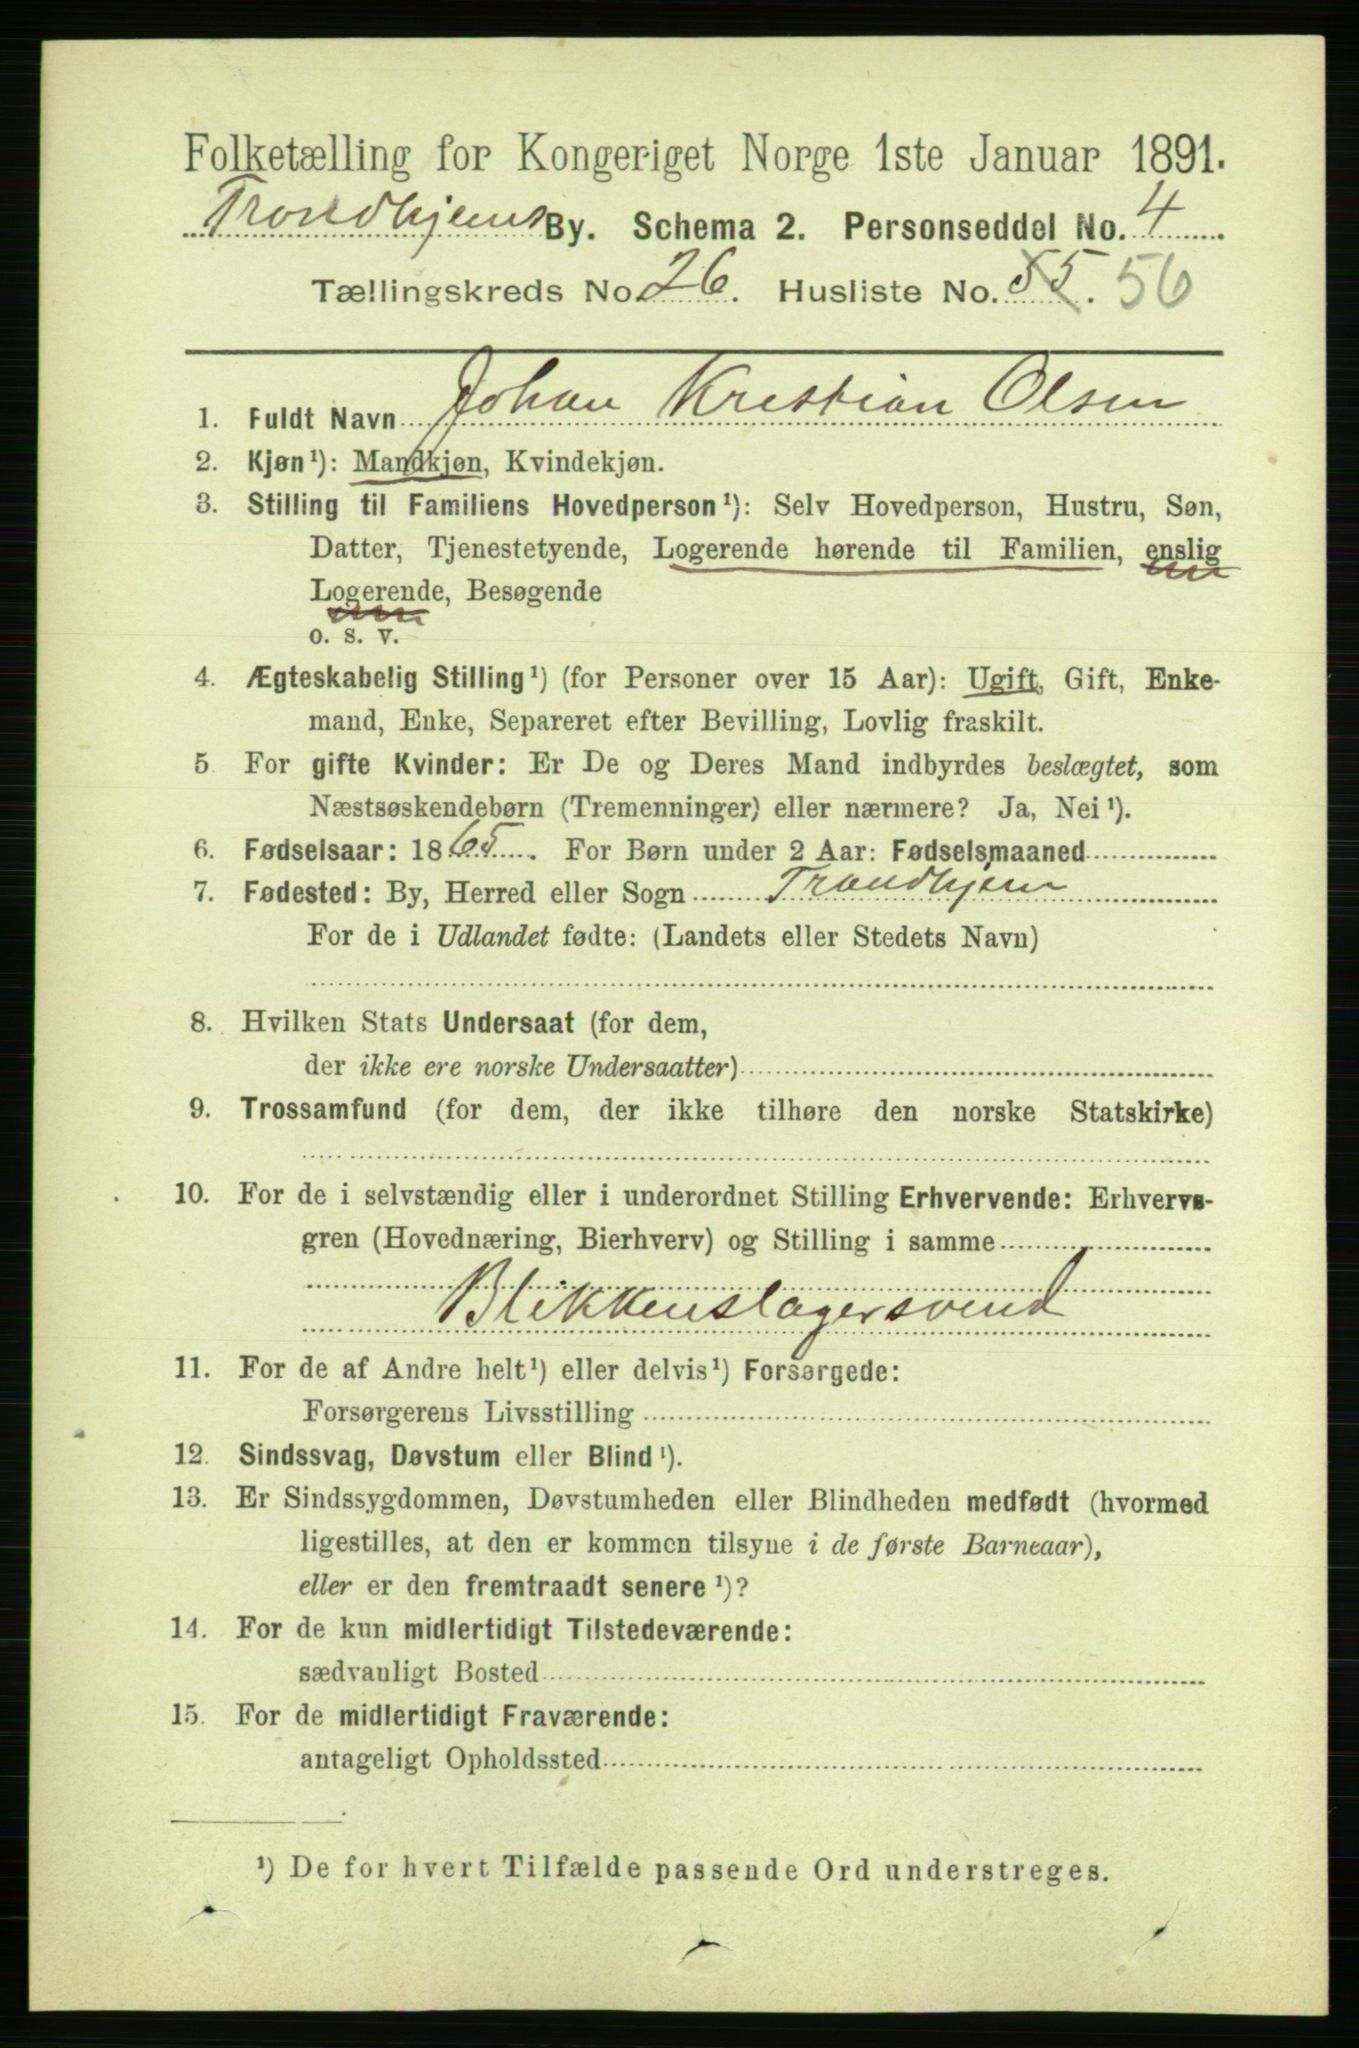 Folketælling for Kongeriget Norge 1ste Januar 1891.
Trondhjems By. Schema 2. Personseddel No. 4
Tællingskreds No. 26. Husliste No. 55. 56
1. Fuldt Navn Johan Kristian Olsen
2. Kjøn¹): Mandkjøn, Kvindekjøn.
3. Stilling til Familiens Hovedperson¹): Selv Hovedperson, Hustru, Søn,
Datter, Tjenestetyende, Logerende hørende til Familien, enslig
Logerende, Besøgende
o. s. v.
4. Ægteskabelig Stilling¹) (for Personer over 15 Aar): Ugift, Gift, Enke-
mand, Enke, Separeret efter Bevilling, Lovlig fraskilt.
5 For gifte Kvinder: Er De og Deres Mand indbyrdes beslægtet, som
Næstsøskendebørn (Tremenninger) eller nærmere? Ja, Nei¹).
6. Fødselsaar: 1865. For Børn under 2 Aar: Fødselsmaaned
7. Fødested: By, Herred eller Sogn Trondhjem
For de i Udlandet fødte: (Landets eller Stedets Navn)
8. Hvilken Stats Undersaat (for dem,
der ikke ere norske Undersaatter)
9. Trossamfund (for dem, der ikke tilhøre den norske Statskirke)
10. For de i selvstændig eller i underordnet Stilling Erhvervende: Erhvervs-
gren (Hovednæring, Bierhverv) og Stilling i samme
Blikkenslagersvend
11. For de af Andre helt¹) eller delvis¹) Forsørgede:
Forsørgerens Livsstilling
12. Sindssvag, Døvstum eller Blind¹).
13. Er Sindssygdommen, Døvstumheden eller Blindheden medfødt (hvormed
ligestilles, at den er kommen tilsyne i de første Barneaar),
eller er den fremtraadt senere¹)?
14. For de kun midlertidigt Tilstedeværende:
sædvanligt Bosted
15. For de midlertidigt Fraværende:
antageligt Opholdssted
¹) De for hvert Tilfælde passende Ord understreges.